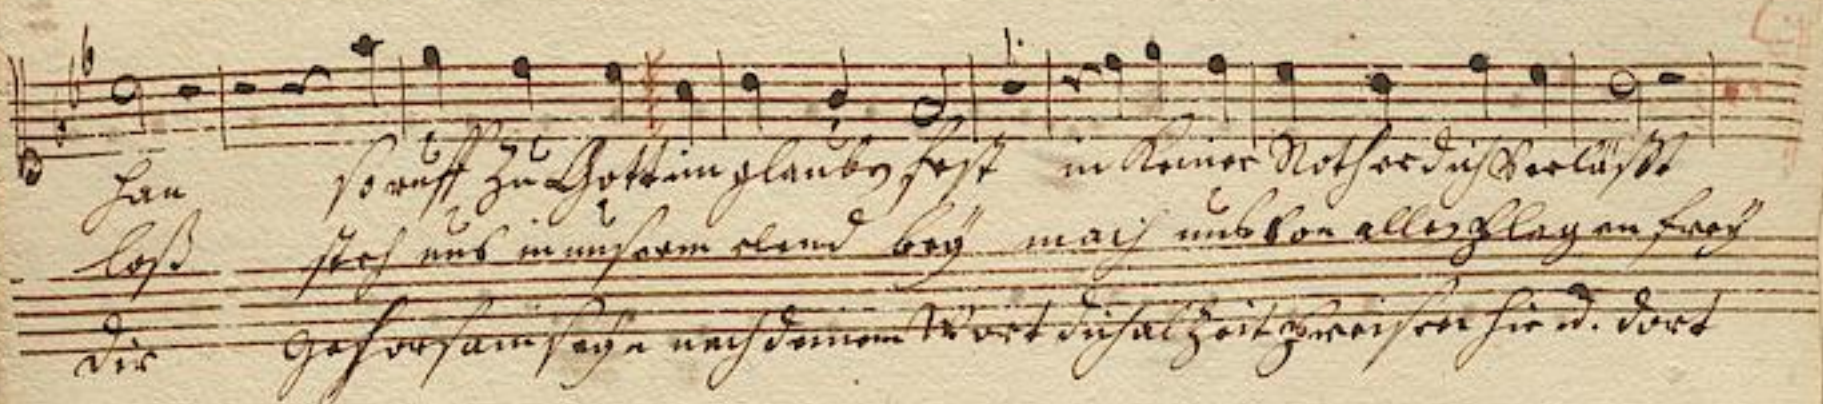 han so ruff zu Gott im glauben fest in keiner Noth er dich verläßt
loß steh uns in unserm elend bey mach uns von allen plagen frey
dir gehorsam seyn nach deinem Wort dich alzeit preisen hie u. dort